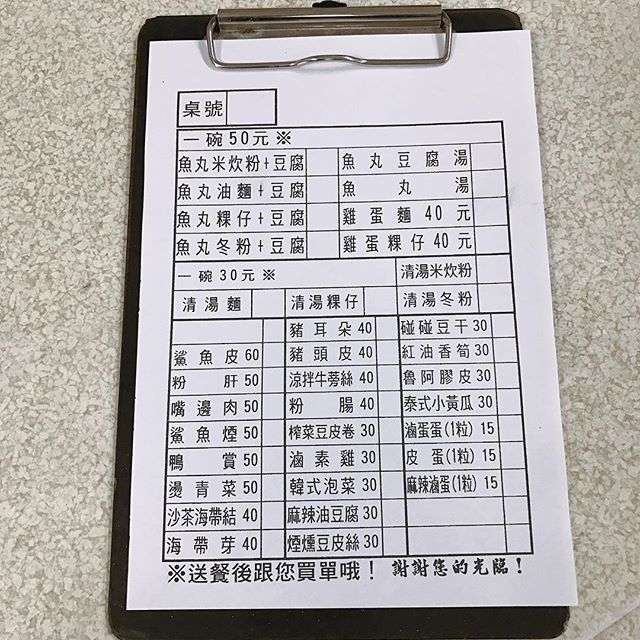 桌號
一碗50元※
魚丸米炊粉+豆腐 魚丸豆腐湯
魚丸油麵+豆腐 魚丸湯
魚丸粿仔+豆腐 雞蛋麵40元
魚丸冬粉+豆腐 雞蛋粿仔40元
一碗30元※ 清湯米炊粉
清湯麵 清湯粿仔 清湯冬粉
豬耳朵40 碰碰豆干30
鯊魚皮60 豬頭皮40 紅油香筍30
粉肝50 涼拌牛蒡絲40 魯阿膠皮30
嘴邊肉50 粉腸40 泰式小黃瓜30
鯊魚煙50 榨菜豆皮卷30 滷蛋蛋(1粒)15
鴨賞50 滷素雞30 皮蛋(1粒)15
燙青菜50 韓式泡菜30 麻辣滷蛋(1粒)15
沙茶海帶結40 麻辣油豆腐30
海帶芽40 煙燻豆皮絲30
※送餐後跟您買單哦！ 謝謝您的光臨！